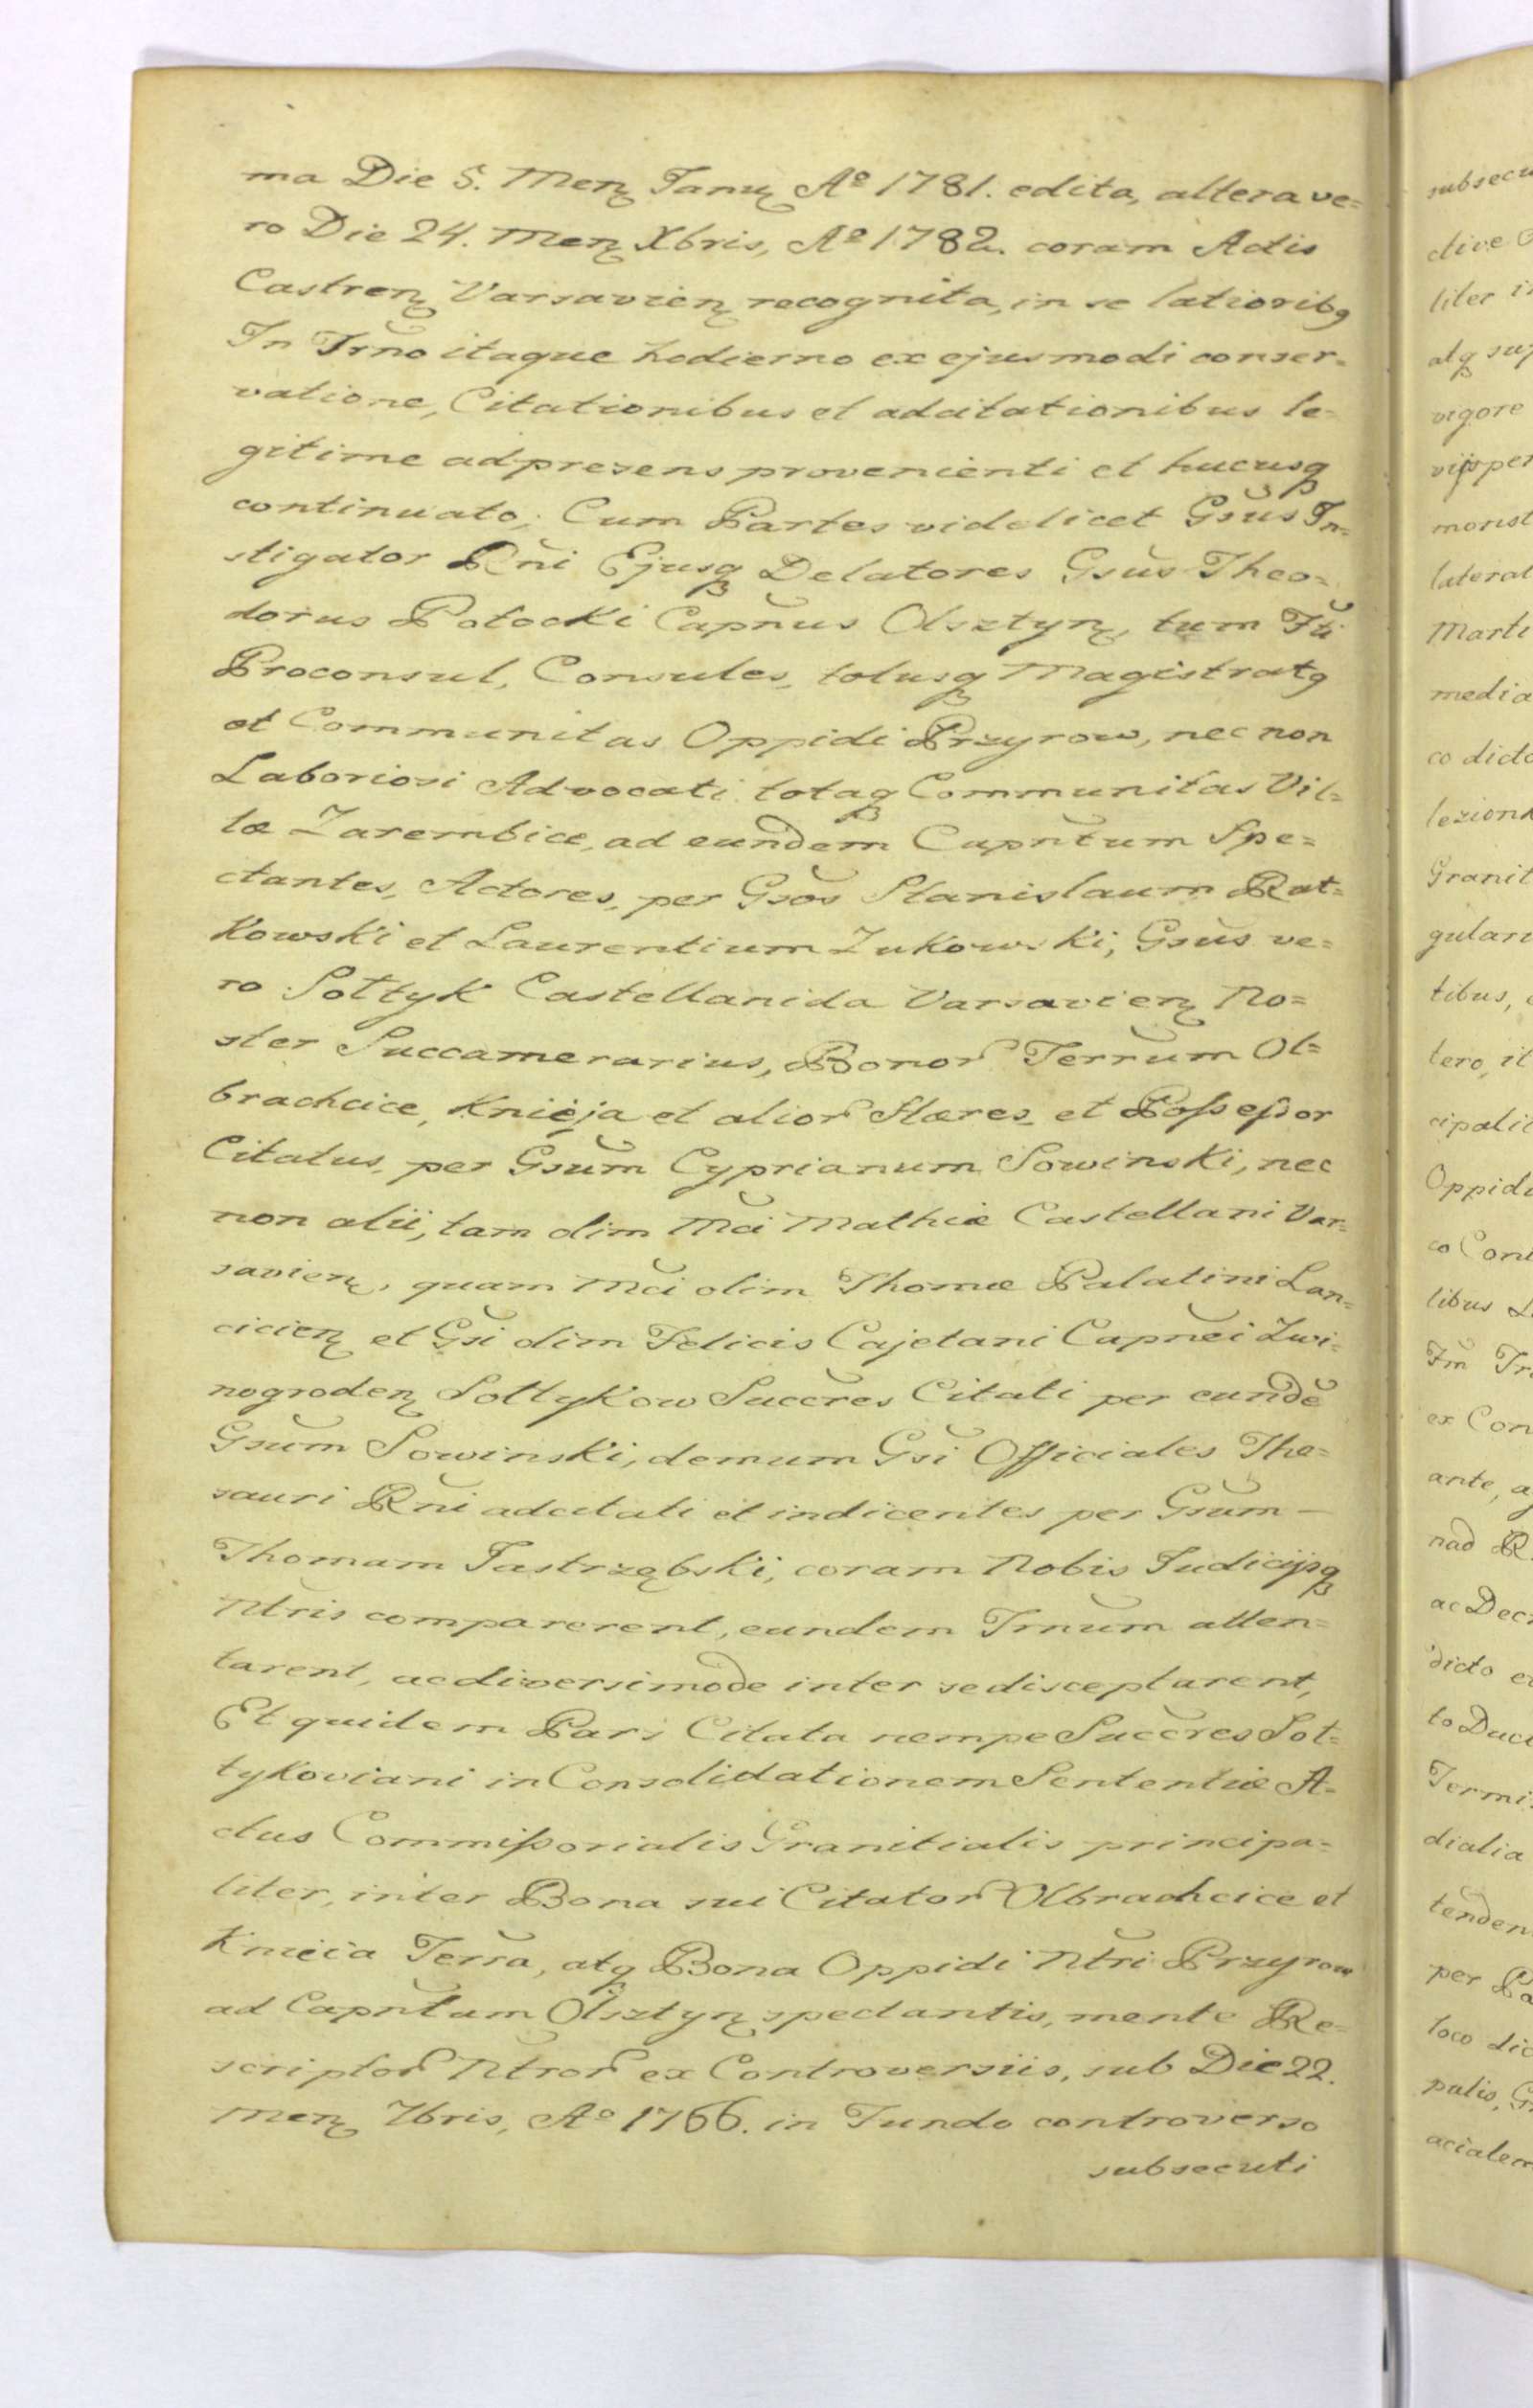 ma Die 5. Menꝫ Januꝫ Aº 1781. edita, altera ve=
ro Die 24. Menꝫ Xbris, Aº 1782. coram Actis
Castrenꝫ Varsavienꝫ recognita, in se latioribꝰ
In Trño itaque hodierno ex ejusmodi conser=
vatione, Citationibus et adcitationibus le=
gitime ad presens provenienti et hucusqꝫ
continuato; Cum Partes videlicet Gsus In=
stigator Rñi Ejusqꝫ Delatores Gsus Theo=
dorus Potocki Capñus Olsztynꝫ, tum Fti
Proconsul, Consules, totusqꝫ Magistratꝰ
et Communitas Oppidi Przyrow, nec non
Laboriosi Advocati totaqꝫ Communitas Vil=
læ Zarembice, ad eundem Capñtum Spe=
ctantes, Actores, per Gsos Stanislaum Rut=
kowski et Laurentium Zukowski, Gsus ve=
ro Sołtyk Castellanida Varsavienꝫ No=
ster Succamerarius, Bonor Terrum Ol=
brachcice, Knieja et alior Hæres, et Possessor
Citatus, per Gsum Cyprianum Sowinski, nec
non alii, tam olim Mci Mathiæ Castellani Var=
savienꝫ, quam Mci olim Thomæ Palatini Lan=
cicienꝫ et Gsi olim Felicis Cajetani Capnei Zwi=
nogrodenꝫ Sołtykow Succres Citati per eundẽ
Gsum Sowinski, demum Gsi Officiales The=
sauri Rñi adcitati et indicentes per Gsum –
Thomam Jastrzębski, coram Nobis Judicijsqꝫ
Ntris comparerent, eundem Trnum atten=
tarent, ac diversimode inter se disceptarent,
Et quidem Pars Citata nempe Succres Soł=
tykoviani in Consolidationem Sententiæ A=
ctus Commissorialis Granitialis principa=
liter, inter Bona sui Citator Olbrachcice et
Knieia Terra, atqꝫ Bona Oppidi Ntri Przyrow
ad Capñtum Olsztynꝫ spectantis, mente Re=
scriptor Ntror ex Controversiis, sub Die 22.
Menꝫ 7bris, Aº 1766. in Fundo controverso
subsecuti
subsecu
ctive
liter
atqꝫ
vigore
vijsper
monst
lateral
Marti
media
co dicto
Granit
gulari
tibus,
tero, it
cipali
Oppidi
libus
ex Con
ante, a
nad R
ac Dec
dicto e
to Duct
Termi
dialia
tenden
per Pa
loco dic
palis, Gr
acialem